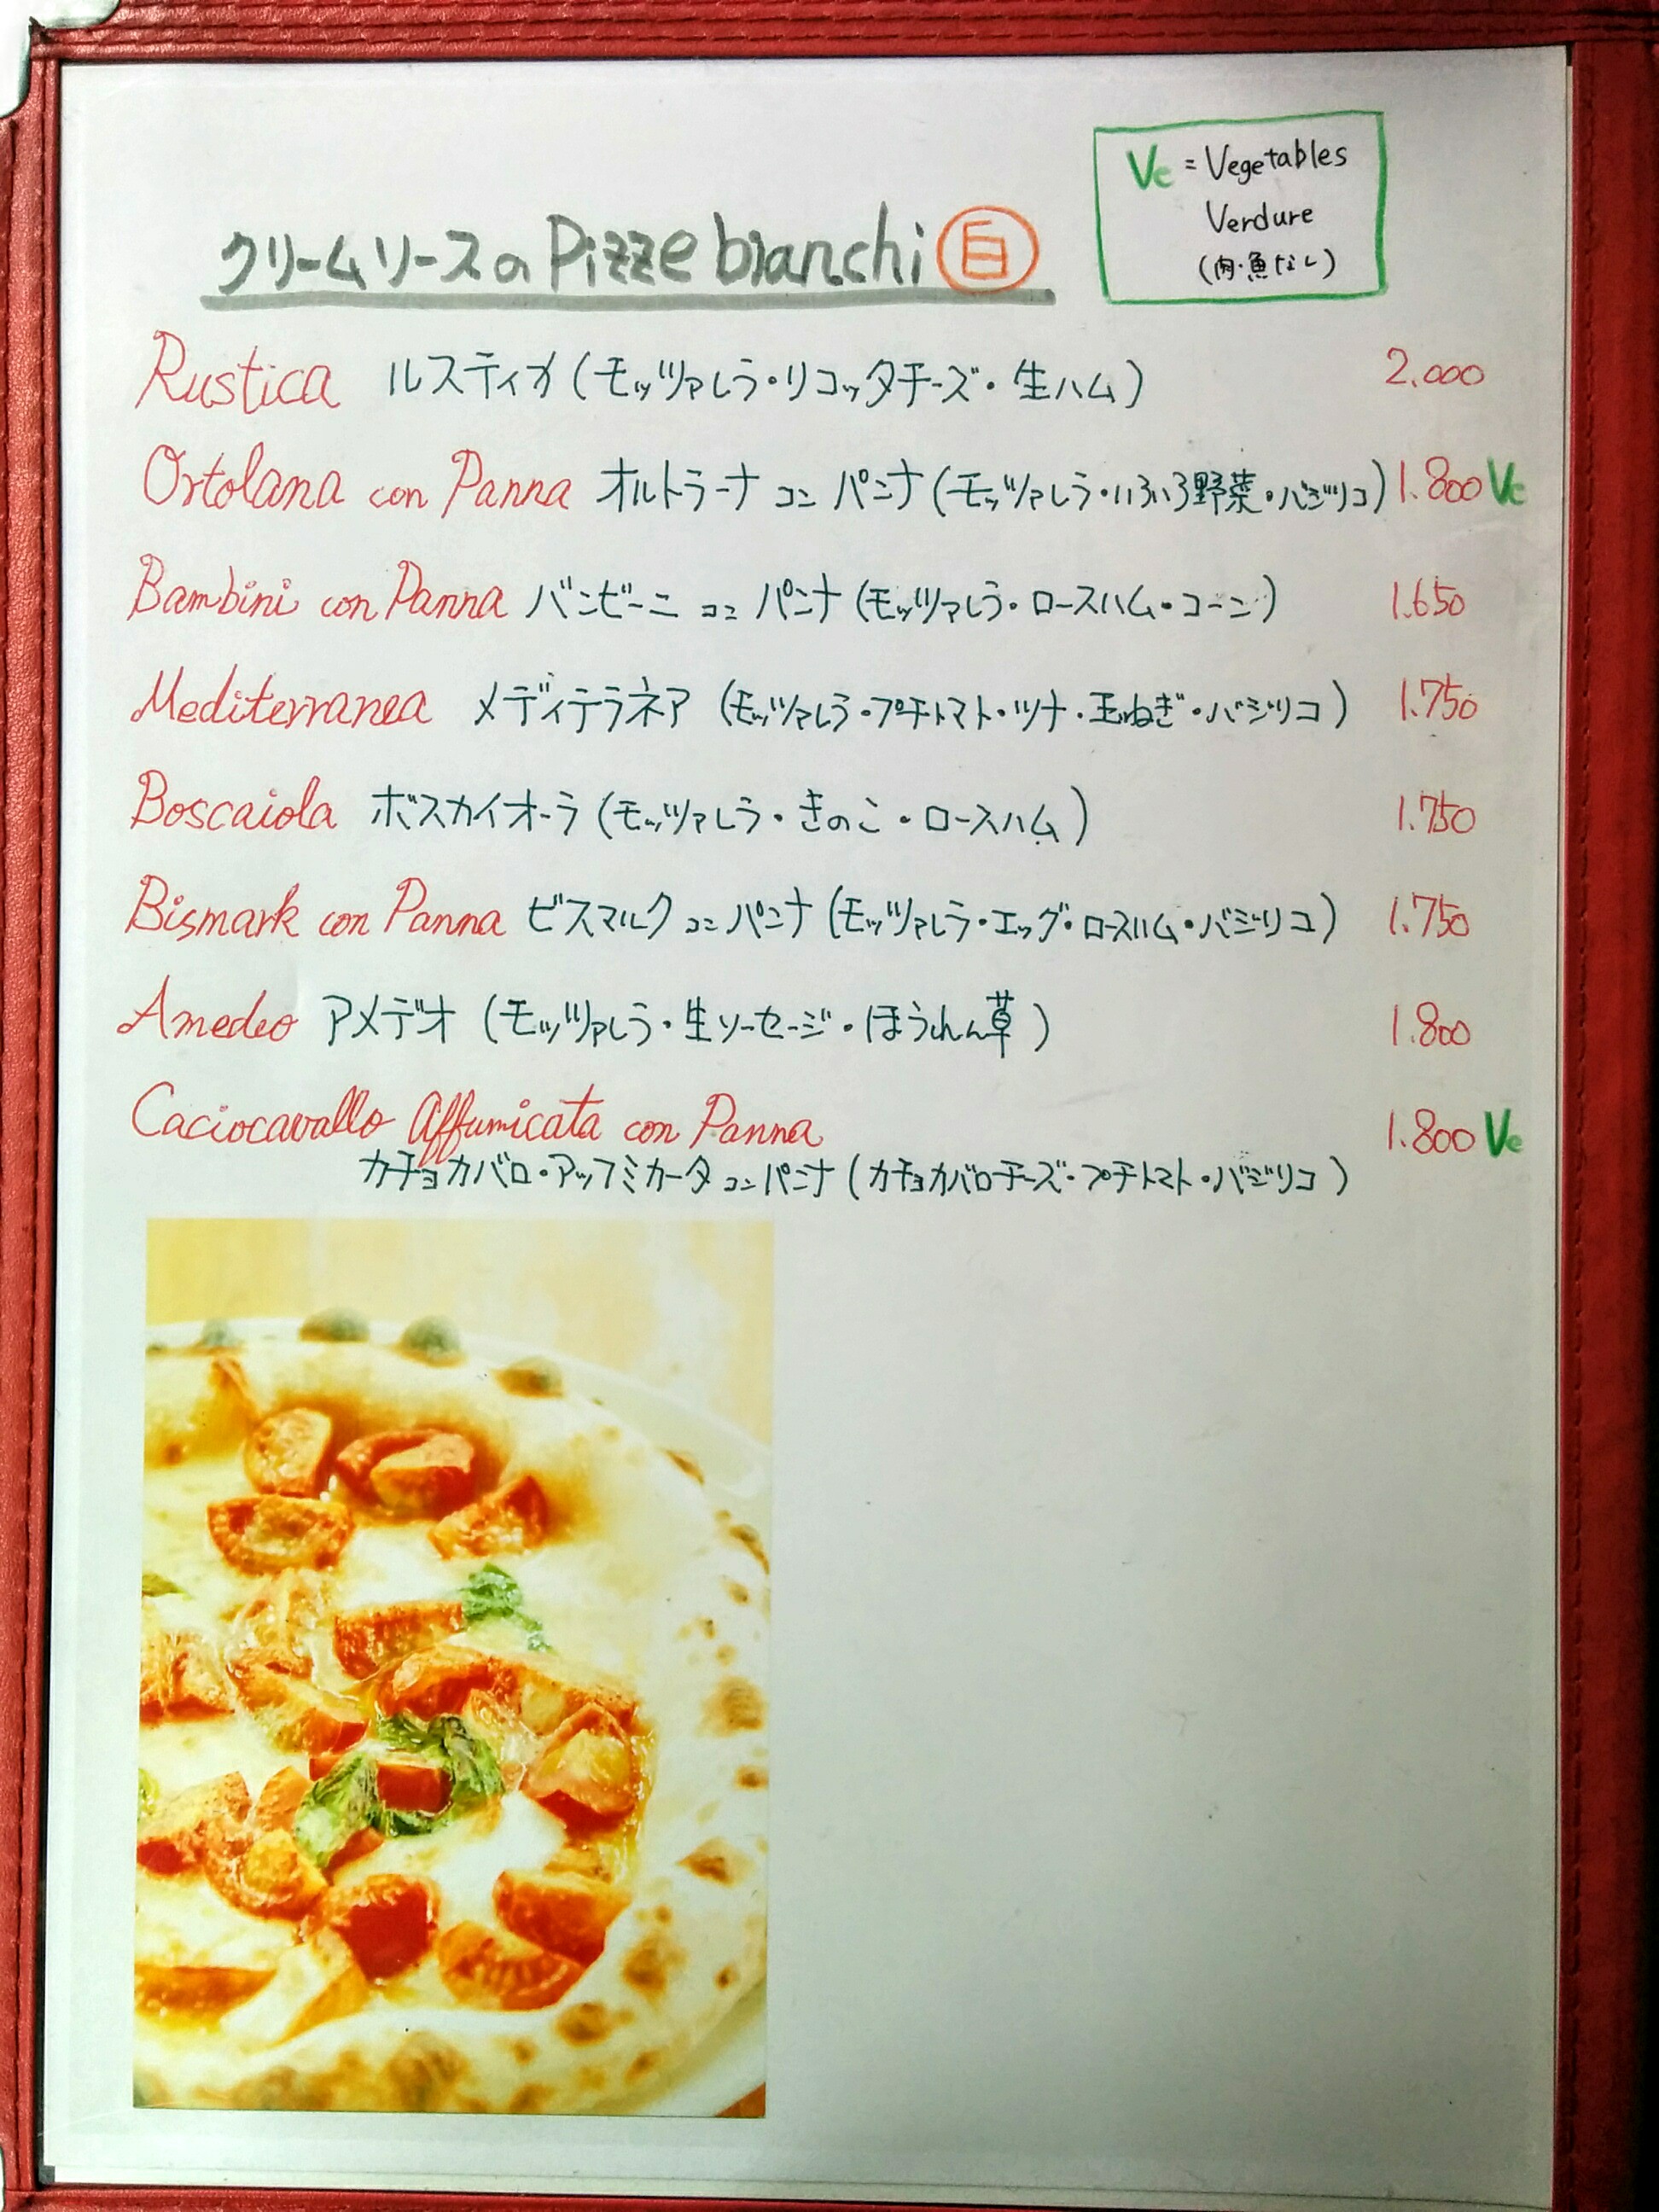 Ve = Vegetables
Verdure
(肉・魚なし)
クリームソースの Pizze bianchi 白
Rustica ルスティカ (モッツァレラ・リコッタチーズ・生ハム) 2.000
Ortolana con Panna オルトラーナ コン パンナ (モッツァレラ・いろいろ野菜・バジリコ) 1.800 Ve
Bambini con Panna バンビーニ コン パンナ (モッツァレラ・ロースハム・コーン) 1.650
Mediterranea メディテラネア (モッツァレラ・プチトマト・ツナ・玉ねぎ・バジリコ) 1.750
Boscaiola ボスカイオーラ (モッツァレラ・きのこ・ロースハム) 1.750
Bismark con Panna ビスマルク コン パンナ (モッツァレラ・エッグ・ロースハム・バジリコ) 1.750
Amedeo アメデオ (モッツァレラ・生ソーセージ・ほうれん草) 1.800
Caciocavallo Affumicata con Panna 1.800 Ve
カチョカバロ・アッフミカータ コン パンナ (カチョカバロチーズ・プチトマト・バジリコ)